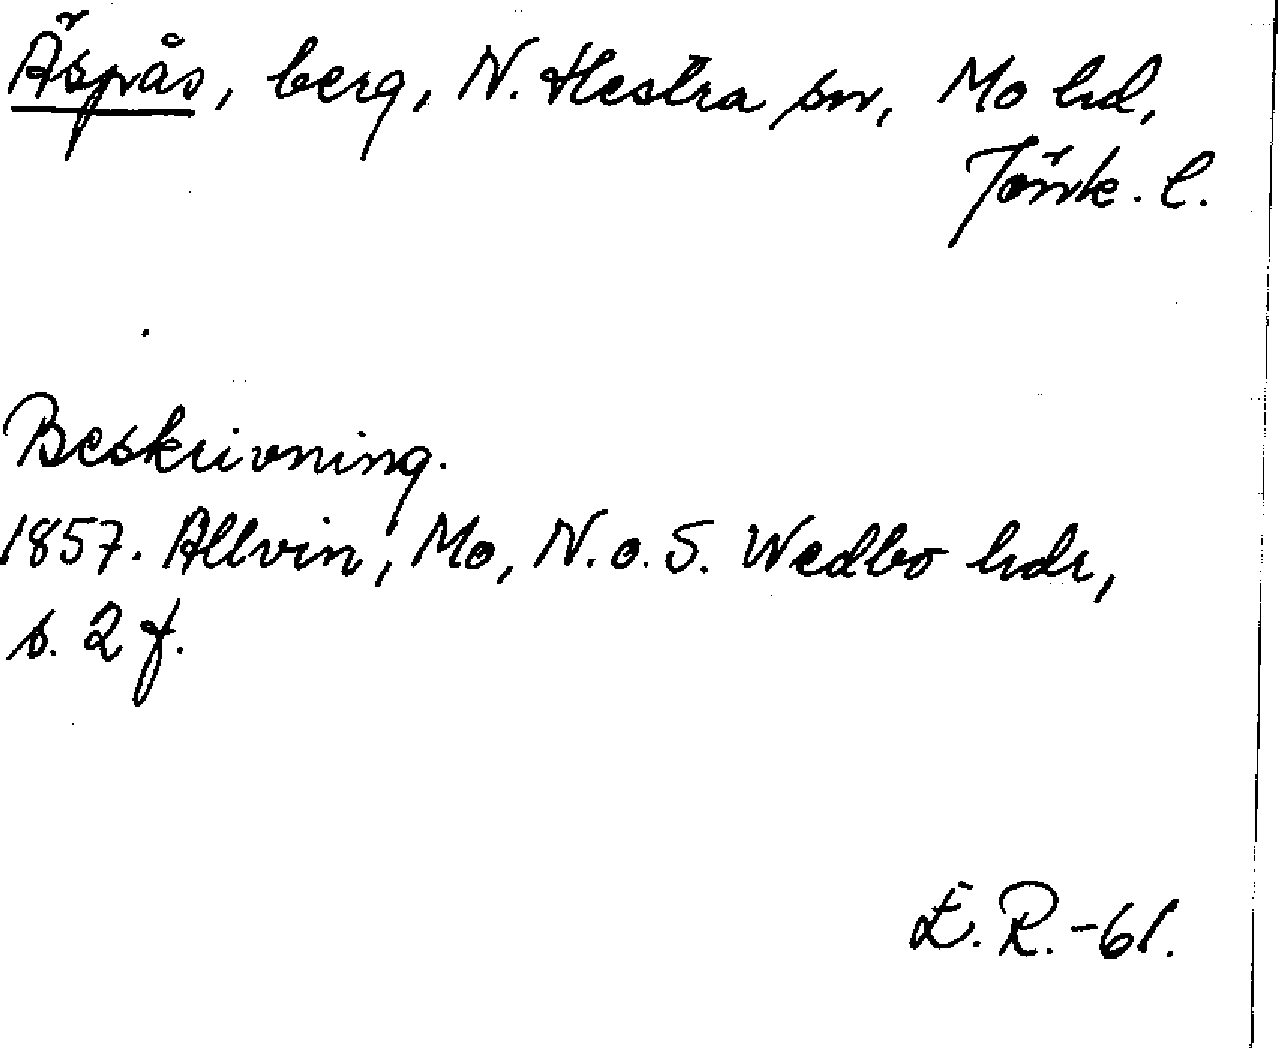 Äspås, berg, N. Hestra sn, Mo hd,
Jönk. l.
Beskrivning.
1857. Allvin, Mo, N. o. S. Wedbo hdr,
s. 2 f.
E. R. -61.